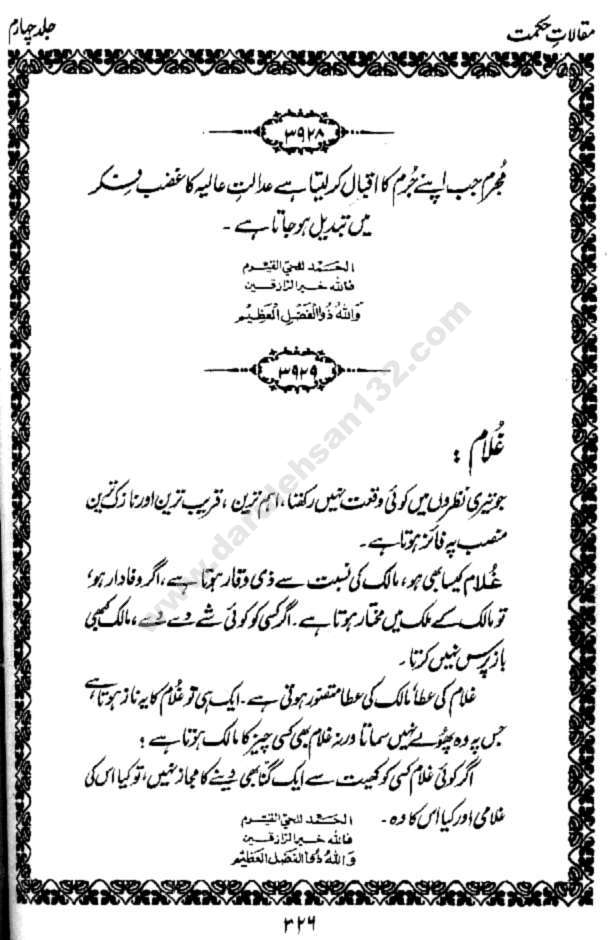 مقالاتِ حکمت
جلد چہارم
۳۹۲۸
مُجرم جب اپنے جُرم کا اقبال کر لیتا ہے عدالتِ عالیہ کا غضب فکر
میں تبدیل ہو جاتا ہے ۔
الحَمد للحیّ القیّوم
فاللّٰه خیر الرازقین
وَاللّٰهُ ذُو الْفَضْلِ الْعَظِیْم
۳۹۲۹
غُلام :
جو تیری نظروں میں کوئی وقعت نہیں رکھتا ، اہم ترین ، قریب ترین اور نازک ترین
منصب پہ فائز ہوتا ہے ۔
غُلام کیسا بھی ہو ، مالک کی نسبت سے ذی وقار ہوتا ہے ، اگر وفادار ہو ؛
تو مالک کے ملک میں مختار ہوتا ہے ۔ اگر کسی کو کوئی شے دے دے ، مالک کبھی
باز پرس نہیں کرتا ۔
غلام کی عطا مالک کی عطا متصوّر ہوتی ہے ۔ ایک ہی تو غُلام کا یہ ناز ہوتا ہے
جس پہ وہ پھُولے نہیں سماتا ورنہ غلام بھی کسی چیز کا مالک ہوتا ہے ؟
اگر کوئی غلام کسی کو کھیت سے ایک گنّا بھی دینے کا مجاز نہیں ، تو کیا اس کی
غلامی اور کیا اس کا وہ ۔
الحَمد للحیّ القیّوم
فاللّٰه خیر الرازقین
وَاللّٰهُ ذُو الفَضل العَظیْم
۳۲۶
www.darulehsan132.com